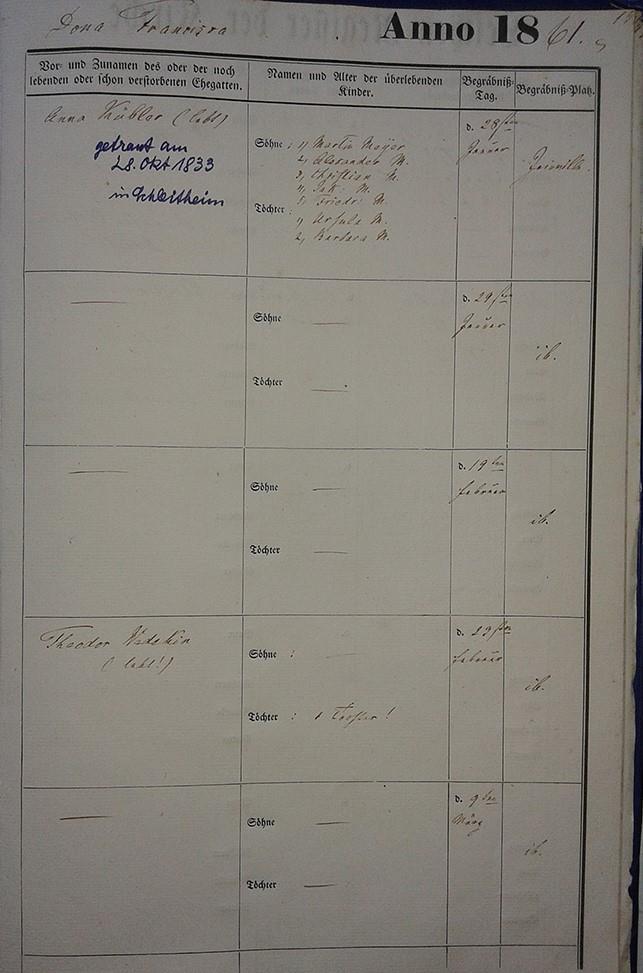 Dona Francisca Anno 1861.
Vor- und Zunamen des oder der noch
lebenden oder schon verstorbenen Ehegatten.
Namen und Alter der überlebenden
Kinder.
Begräbniß-
Tag.
Begräbniß-Platz.
Anna Kübler (lebt)
getraut am
28. Okt 1833
in Schleitheim
Söhne : 1, Martin Meyer
2, Alexander M.
3, Christian M.
4, Jak. M.
5, Friedr. M.
Töchter : 1, Ursula M.
2, Barbara M.
d. 28sten
Januar
Joinville.
Söhne
Töchter
d. 29sten
Januar
ib.
Söhne
Töchter
d. 19ten
Februar
ib.
Theodor
(lebt!)
Söhne :
Töchter : 1 Tochter!
d. 23sten
Februar
ib.
Söhne
Töchter
d. 9ten
März
ib.